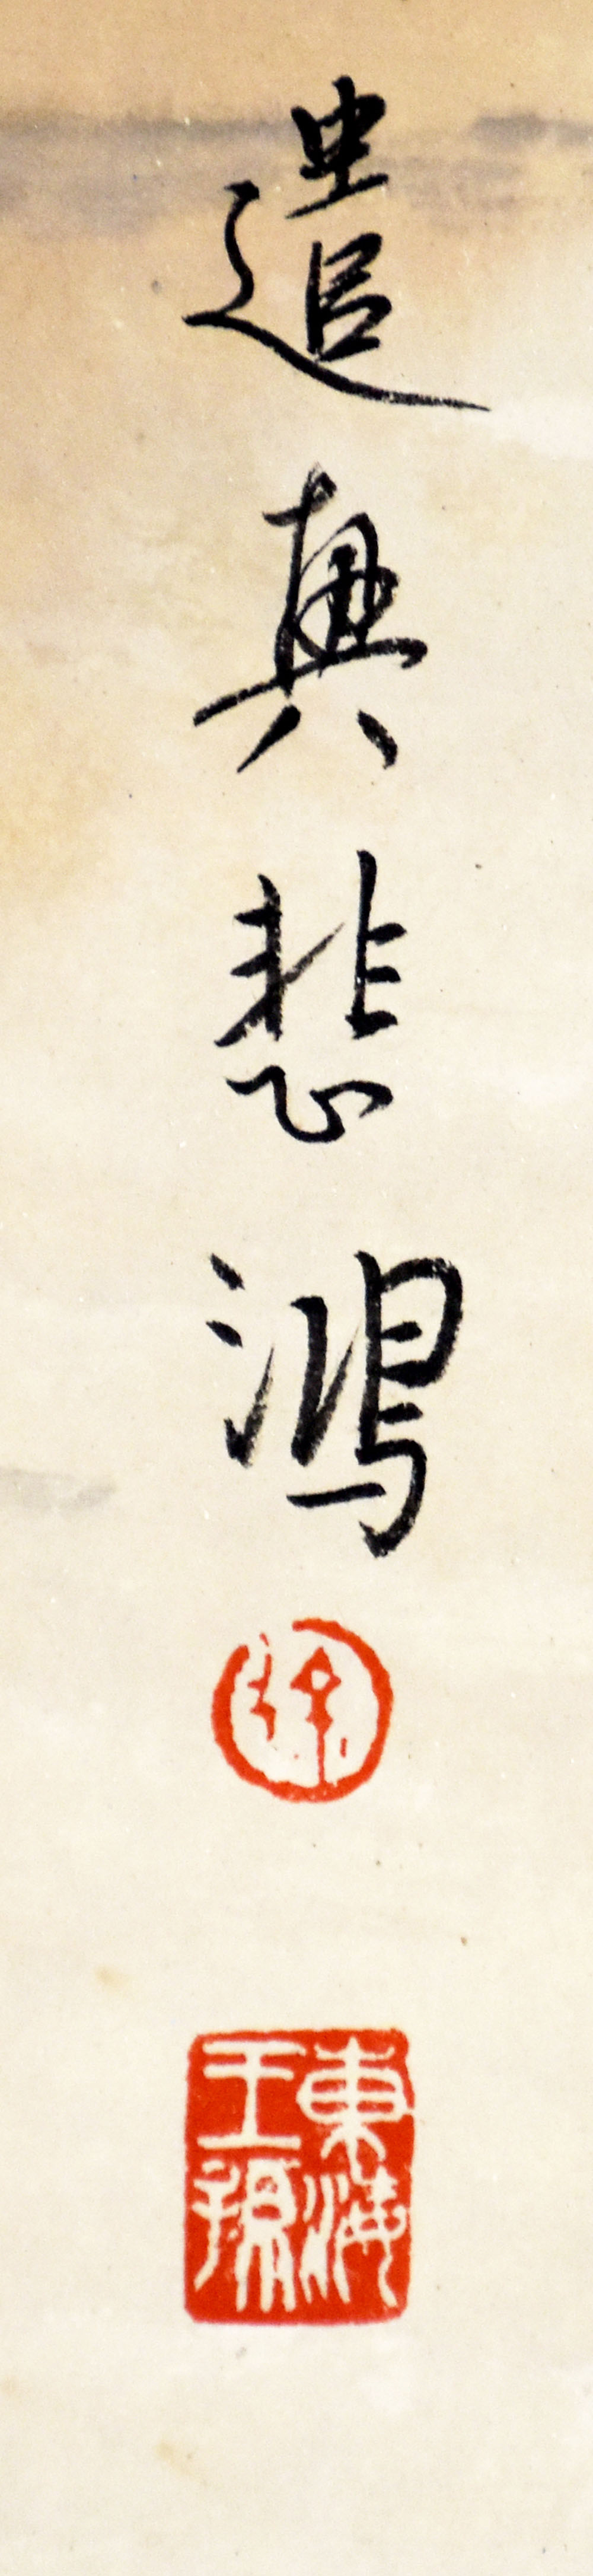 遣興悲鴻
徐
東海王孫